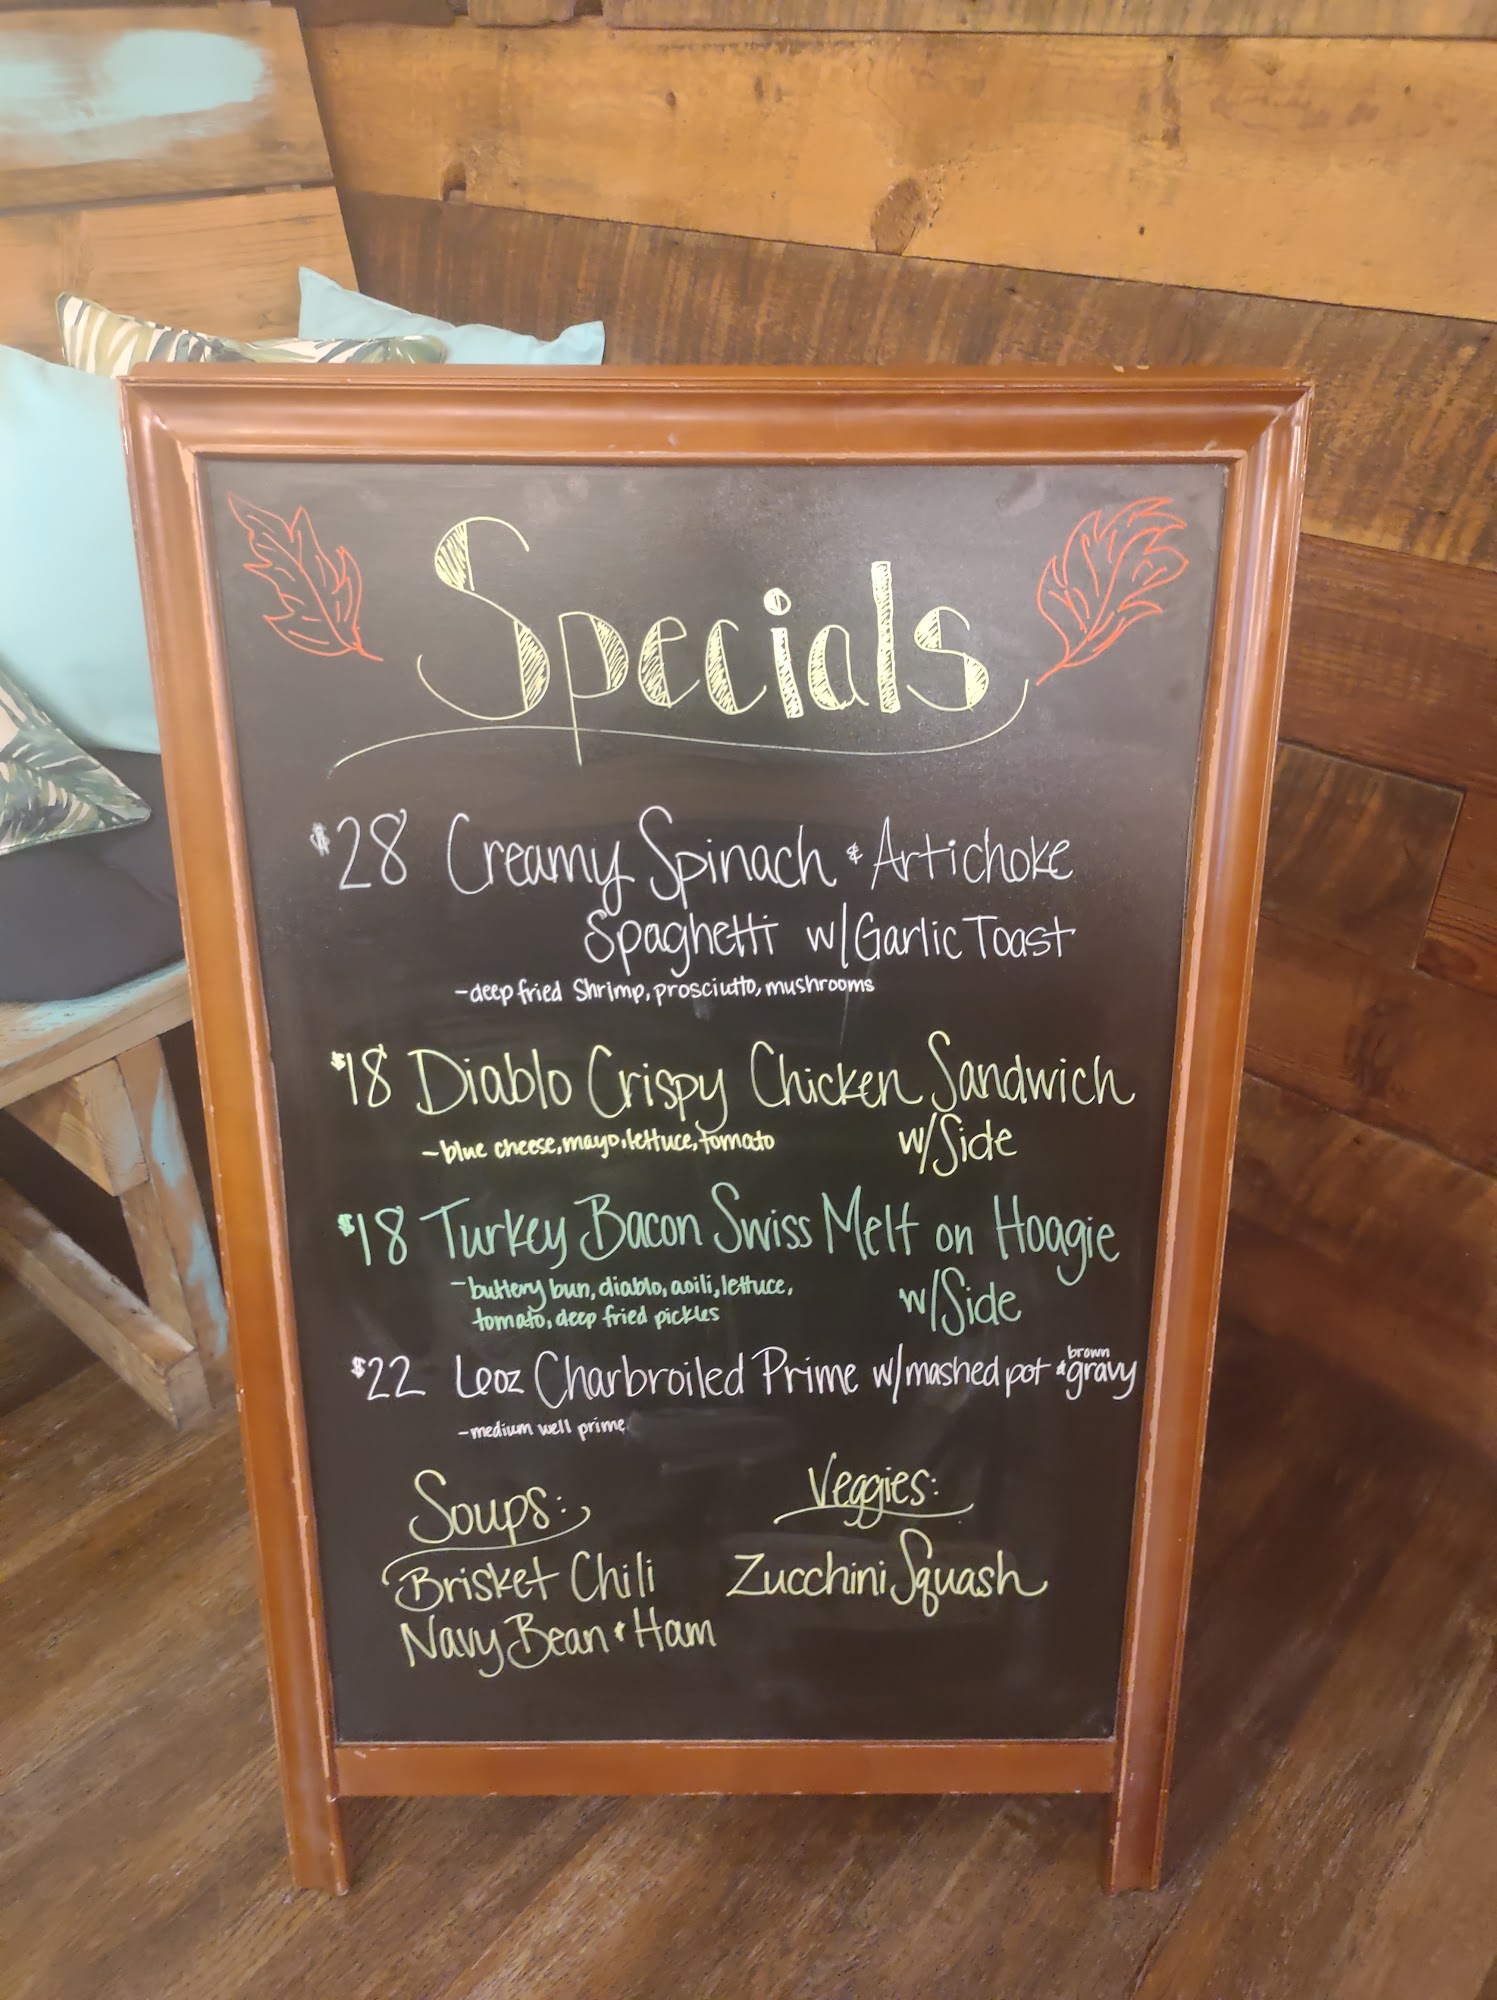 Specials
$28 Creamy Spinach & Artichoke
Spaghetti w/Garlic Toast
-deep fried Shrimp, prosciutto, mushrooms
$18 Diablo Crispy Chicken Sandwich
-blue cheese, mayo, lettuce, tomato w/Side
$18 Turkey Bacon Swiss Melt on Hoagie
-buttery bun, diablo, aoili, lettuce, w/Side
tomato, deep fried pickles
$22 6oz Charbroiled Prime w/mashed pot & brown gravy
-medium well prime
Soups:
Brisket Chili
Navy Bean & Ham
Veggies:
Zucchini Squash